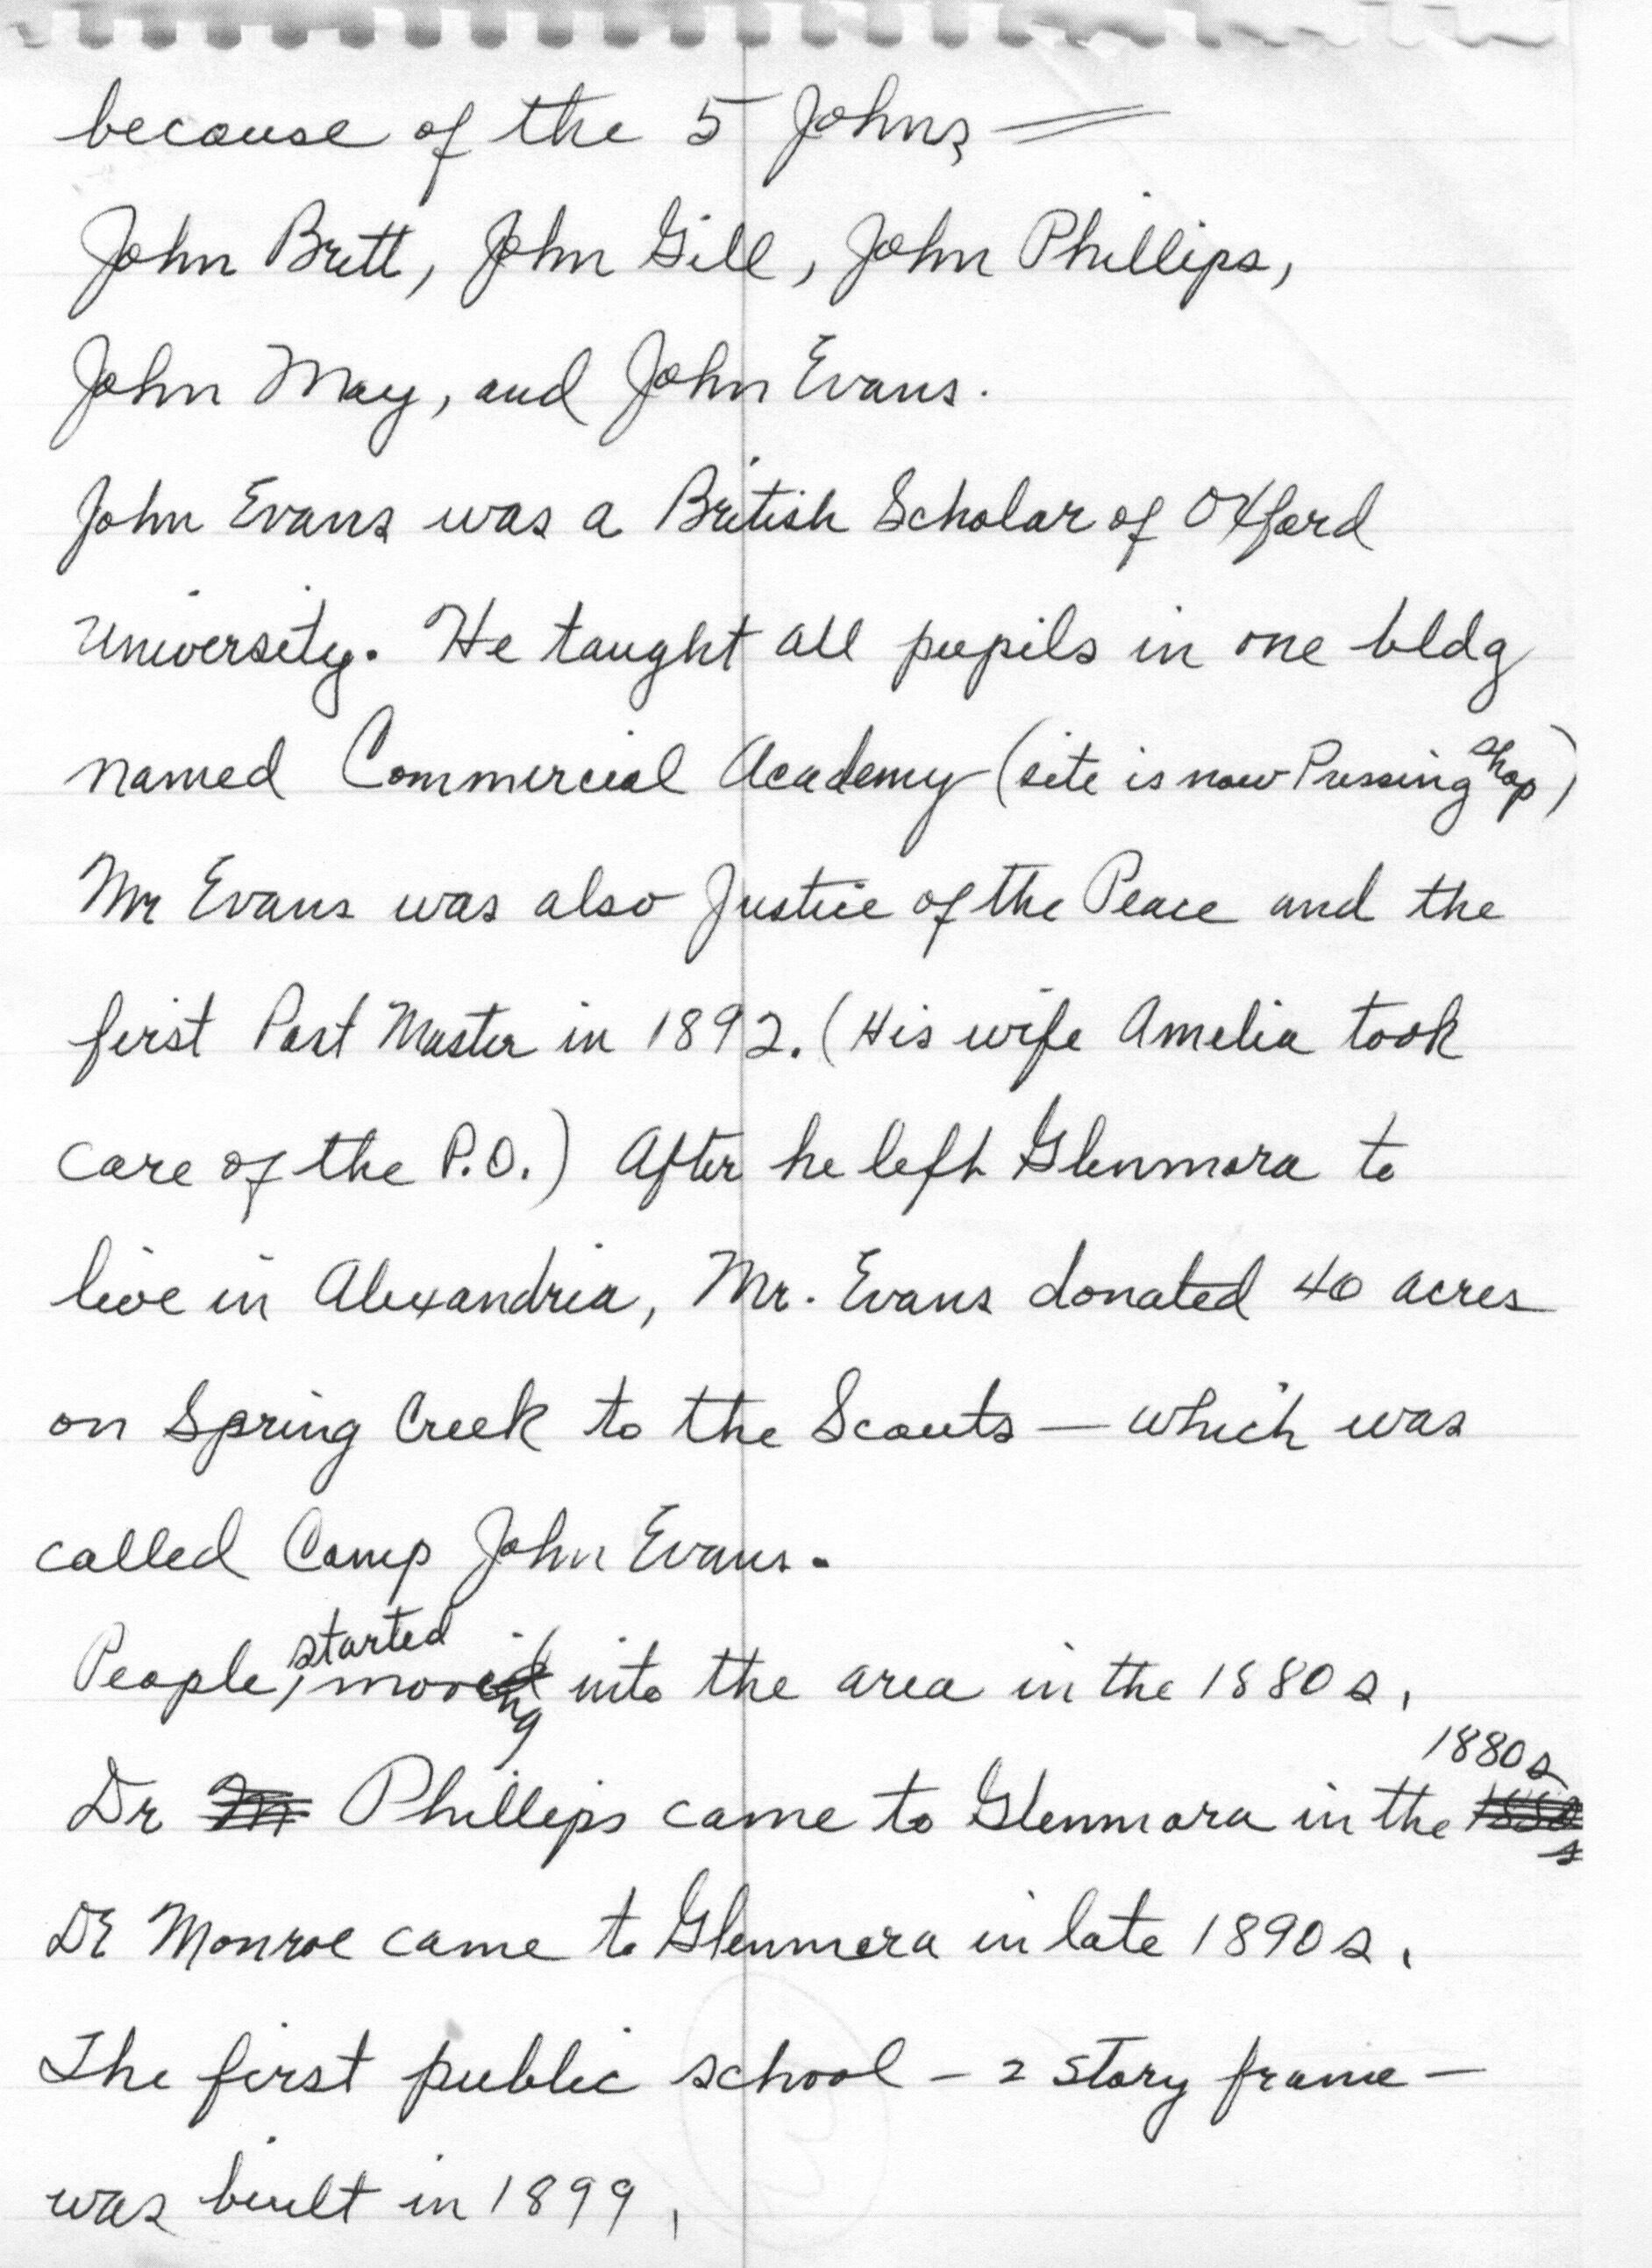 because of the 5 Johns —
John Brett, John Gill, John Phillips,
John May, and John Evans.
John Evans was a British Scholar of Oxford
University. He taught all pupils in one bldg
named Commercial Academy (site is now Pressing Shop)
Mr Evans was also Justice of the Peace and the
first Post Master in 1892. (His wife Amelia took
care of the P.O.) After he left Glenmora to
live in Alexandria, Mr. Evans donated 40 acres
on Spring Creek to the Scouts — which was
called Camp John Evans.
People started moving into the area in the 1880s.
Dr Phillips came to Glenmora in the 1880s
Dr Monroe came to Glenmora in late 1890s.
The first public school – 2 story frame –
was built in 1899.